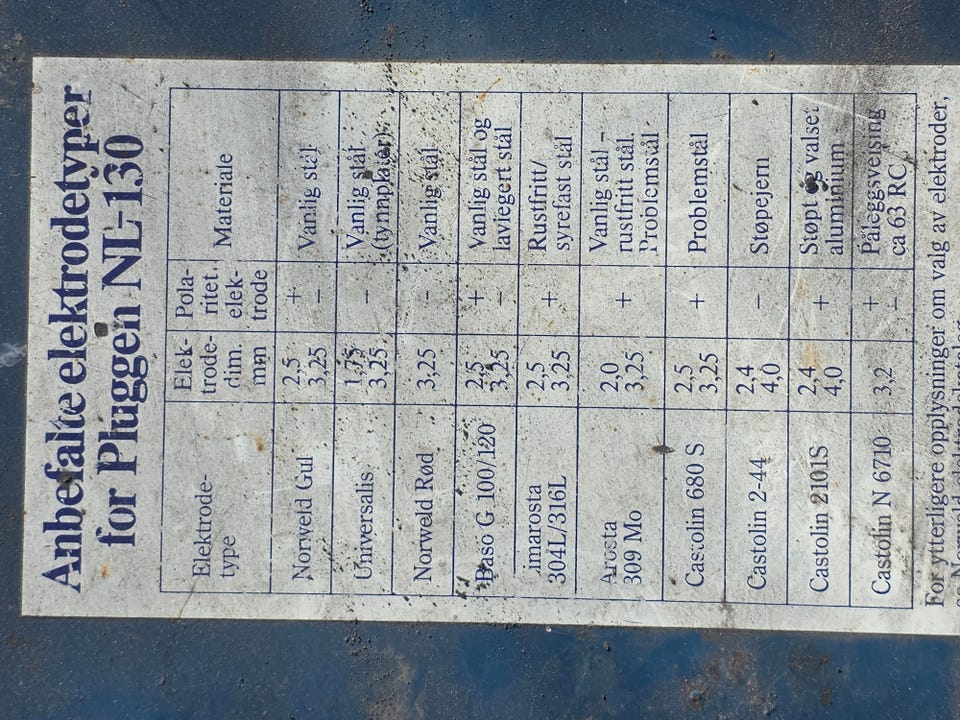 Anbefalte elektrodetyper
for Pluggen NL-130
Elektrode-
type
Elek-
trode-
dim.
mm
Pola-
ritet.
elek-
trode
Materiale
Norweld Gul
2,5
3,25
+
–
Vanlig stål
Universalis
1,75
3,25
–
Vanlig stål
(tynnplater)
Norweld Rød
3,25
–
Vanlig stål
Baso G 100/120
2,5
3,25
+
–
Vanlig stål og
lavlegert stål
Limarosta
304L/316L
2,5
3,25
+
Rustfritt/
syrefast stål
Arosta
309 Mo
2,0
3,25
+
Vanlig stål -
rustfritt stål.
Problemstål
Castolin 680 S
2,5
3,25
+
Problemstål
Castolin 2-44
2,4
4,0
–
Støpejern
Castolin 2101S
2,4
4,0
+
Støpt og valset
aluminium
Castolin N 6710
3,2
+
–
Påleggsveising
ca 63 RC
For ytterligere opplysninger om valg av elektroder,